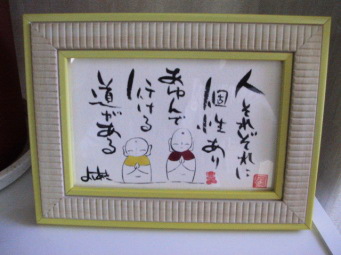 人それぞれに
個性あり
あゆんで
行ける
道がある